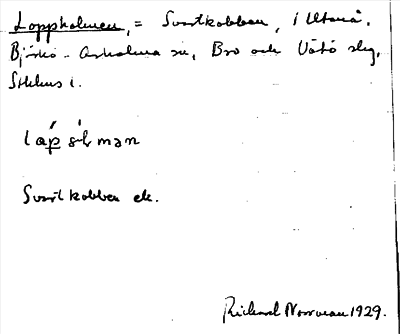 Loppholmen, = Svartkobben, i Utanå.
Björkö-Arholma sn, Bro och Vätö slg,
Sthlms l.
Svartkobben ek.
Richard Norrman 1929.